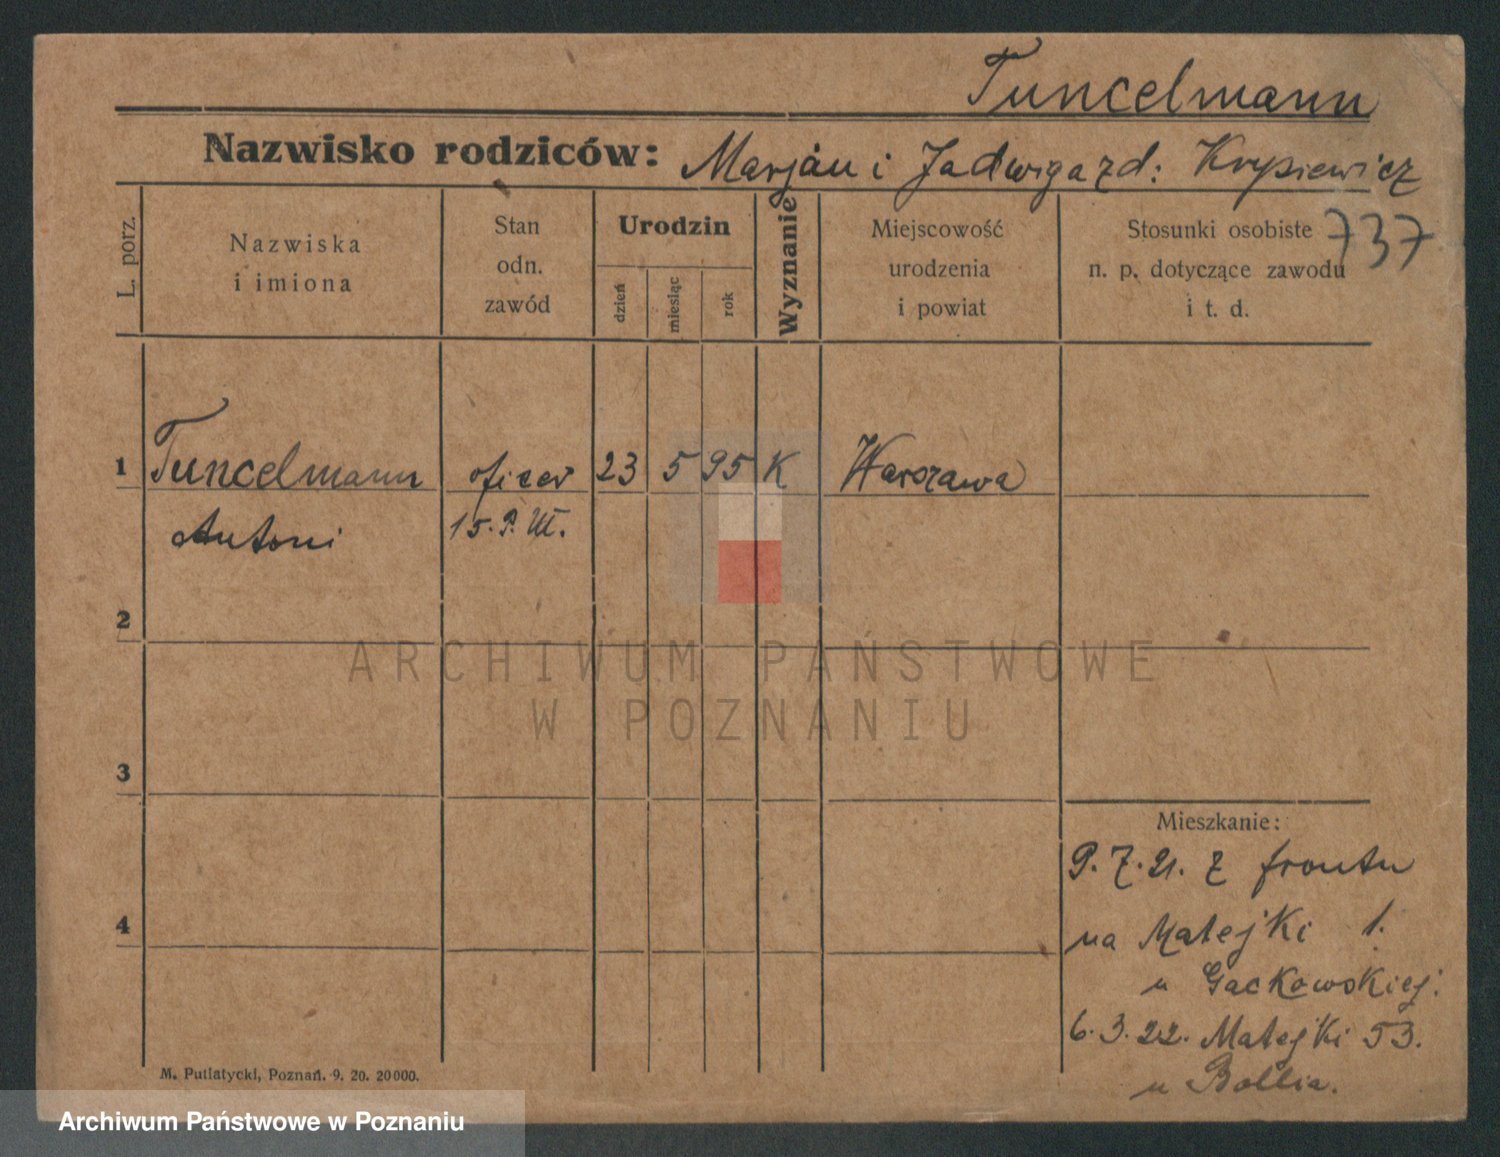 Tuncelmann
Nazwisko rodziców: Marjan i Jadwiga zd: Krysiewicz
737
L. porz.
Nazwiska
i imiona
Stan
odn.
zawód
Urodzin
dzień
miesiąc
rok
Wyznanie
Miejscowość
urodzenia
i powiat
Stosunki osobiste
n. p. dotyczące zawodu
i t. d.
1 Tuncelmann oficer 23 5 95 K Warszawa
Antoni 15. P. Uł.
2
3
4
Mieszkanie:
9. 7. 21. z frontu
na Matejki 1.
u Gackowskiej.
6. 3. 22. Matejki 53.
u
M. Putiatycki, Poznań. 9. 20. 20000.
ARCHIWUM PAŃSTWOWE
W POZNANIU
Archiwum Państwowe w Poznaniu